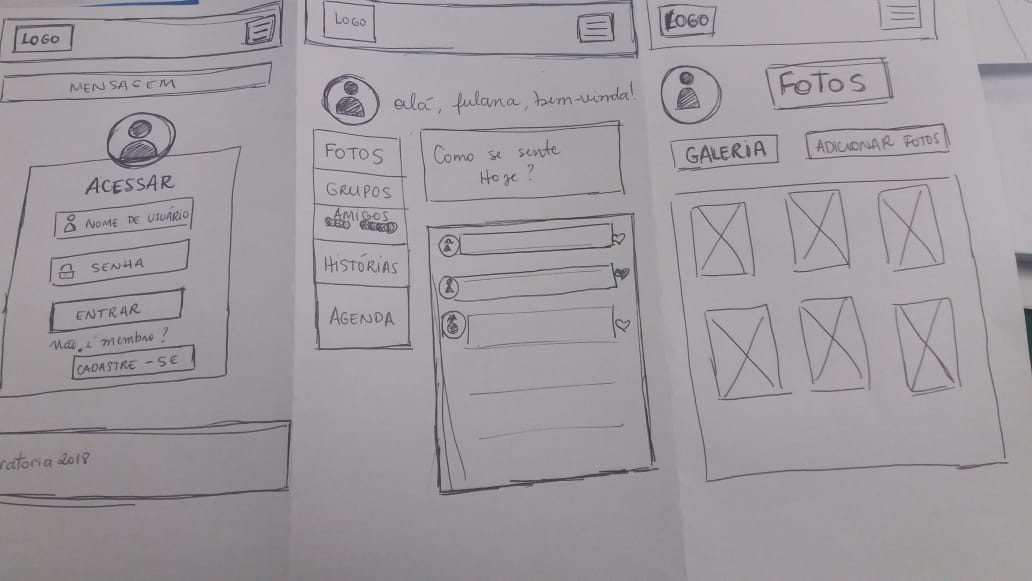 LOGO
MENSAGEM
ACESSAR
NOME DE USUÁRIO
SENHA
ENTRAR
Não é membro?
CADASTRE-SE
ratoria 2018
LOGO
olá, fulana, bem-vinda!
FOTOS
GRUPOS
AMIGOS
HISTÓRIAS
AGENDA
Como se sente
Hoje?
LOGO
FOTOS
GALERIA
ADICIONAR FOTOS